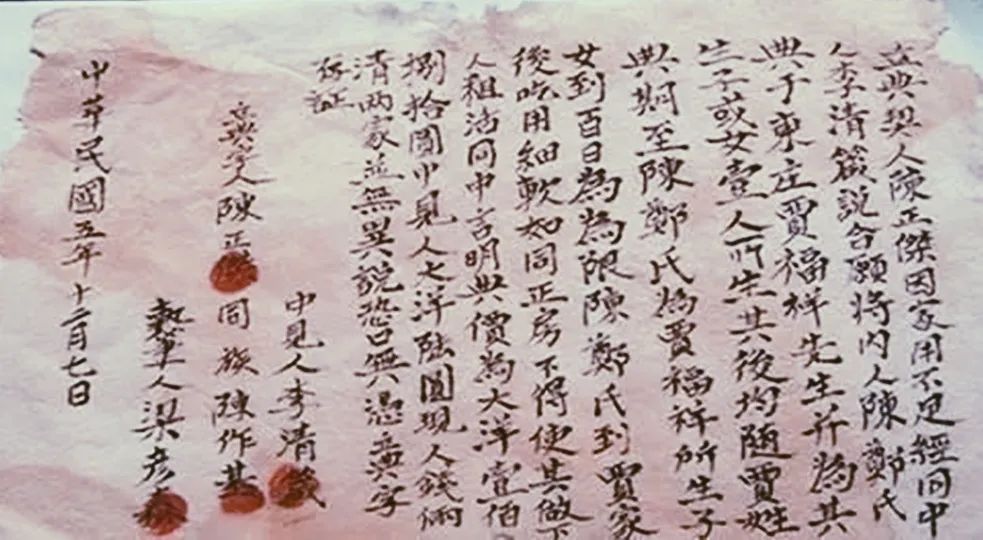 立典契人陳正傑因家用不足經同中
人李清箴說合願将内人陳鄭氏
典于東庄賈福祥先生并為其
生子或女壹人所生其後均随賈姓
典期至陳鄭氏為賈福祥所生子
女到百日為為限陳鄭氏到賈家
後吃用細軟如同正房不得使其做下
人粗活同中言明典價為大洋壹佰
捌拾圓中見人之洋陸圓現人錢倆
清两家並無異說恐口無憑立典字
存証
中見人李清箴
立典字人陳正傑 同族陳作其
執筆人梁彦
中華民國五年十二月七日